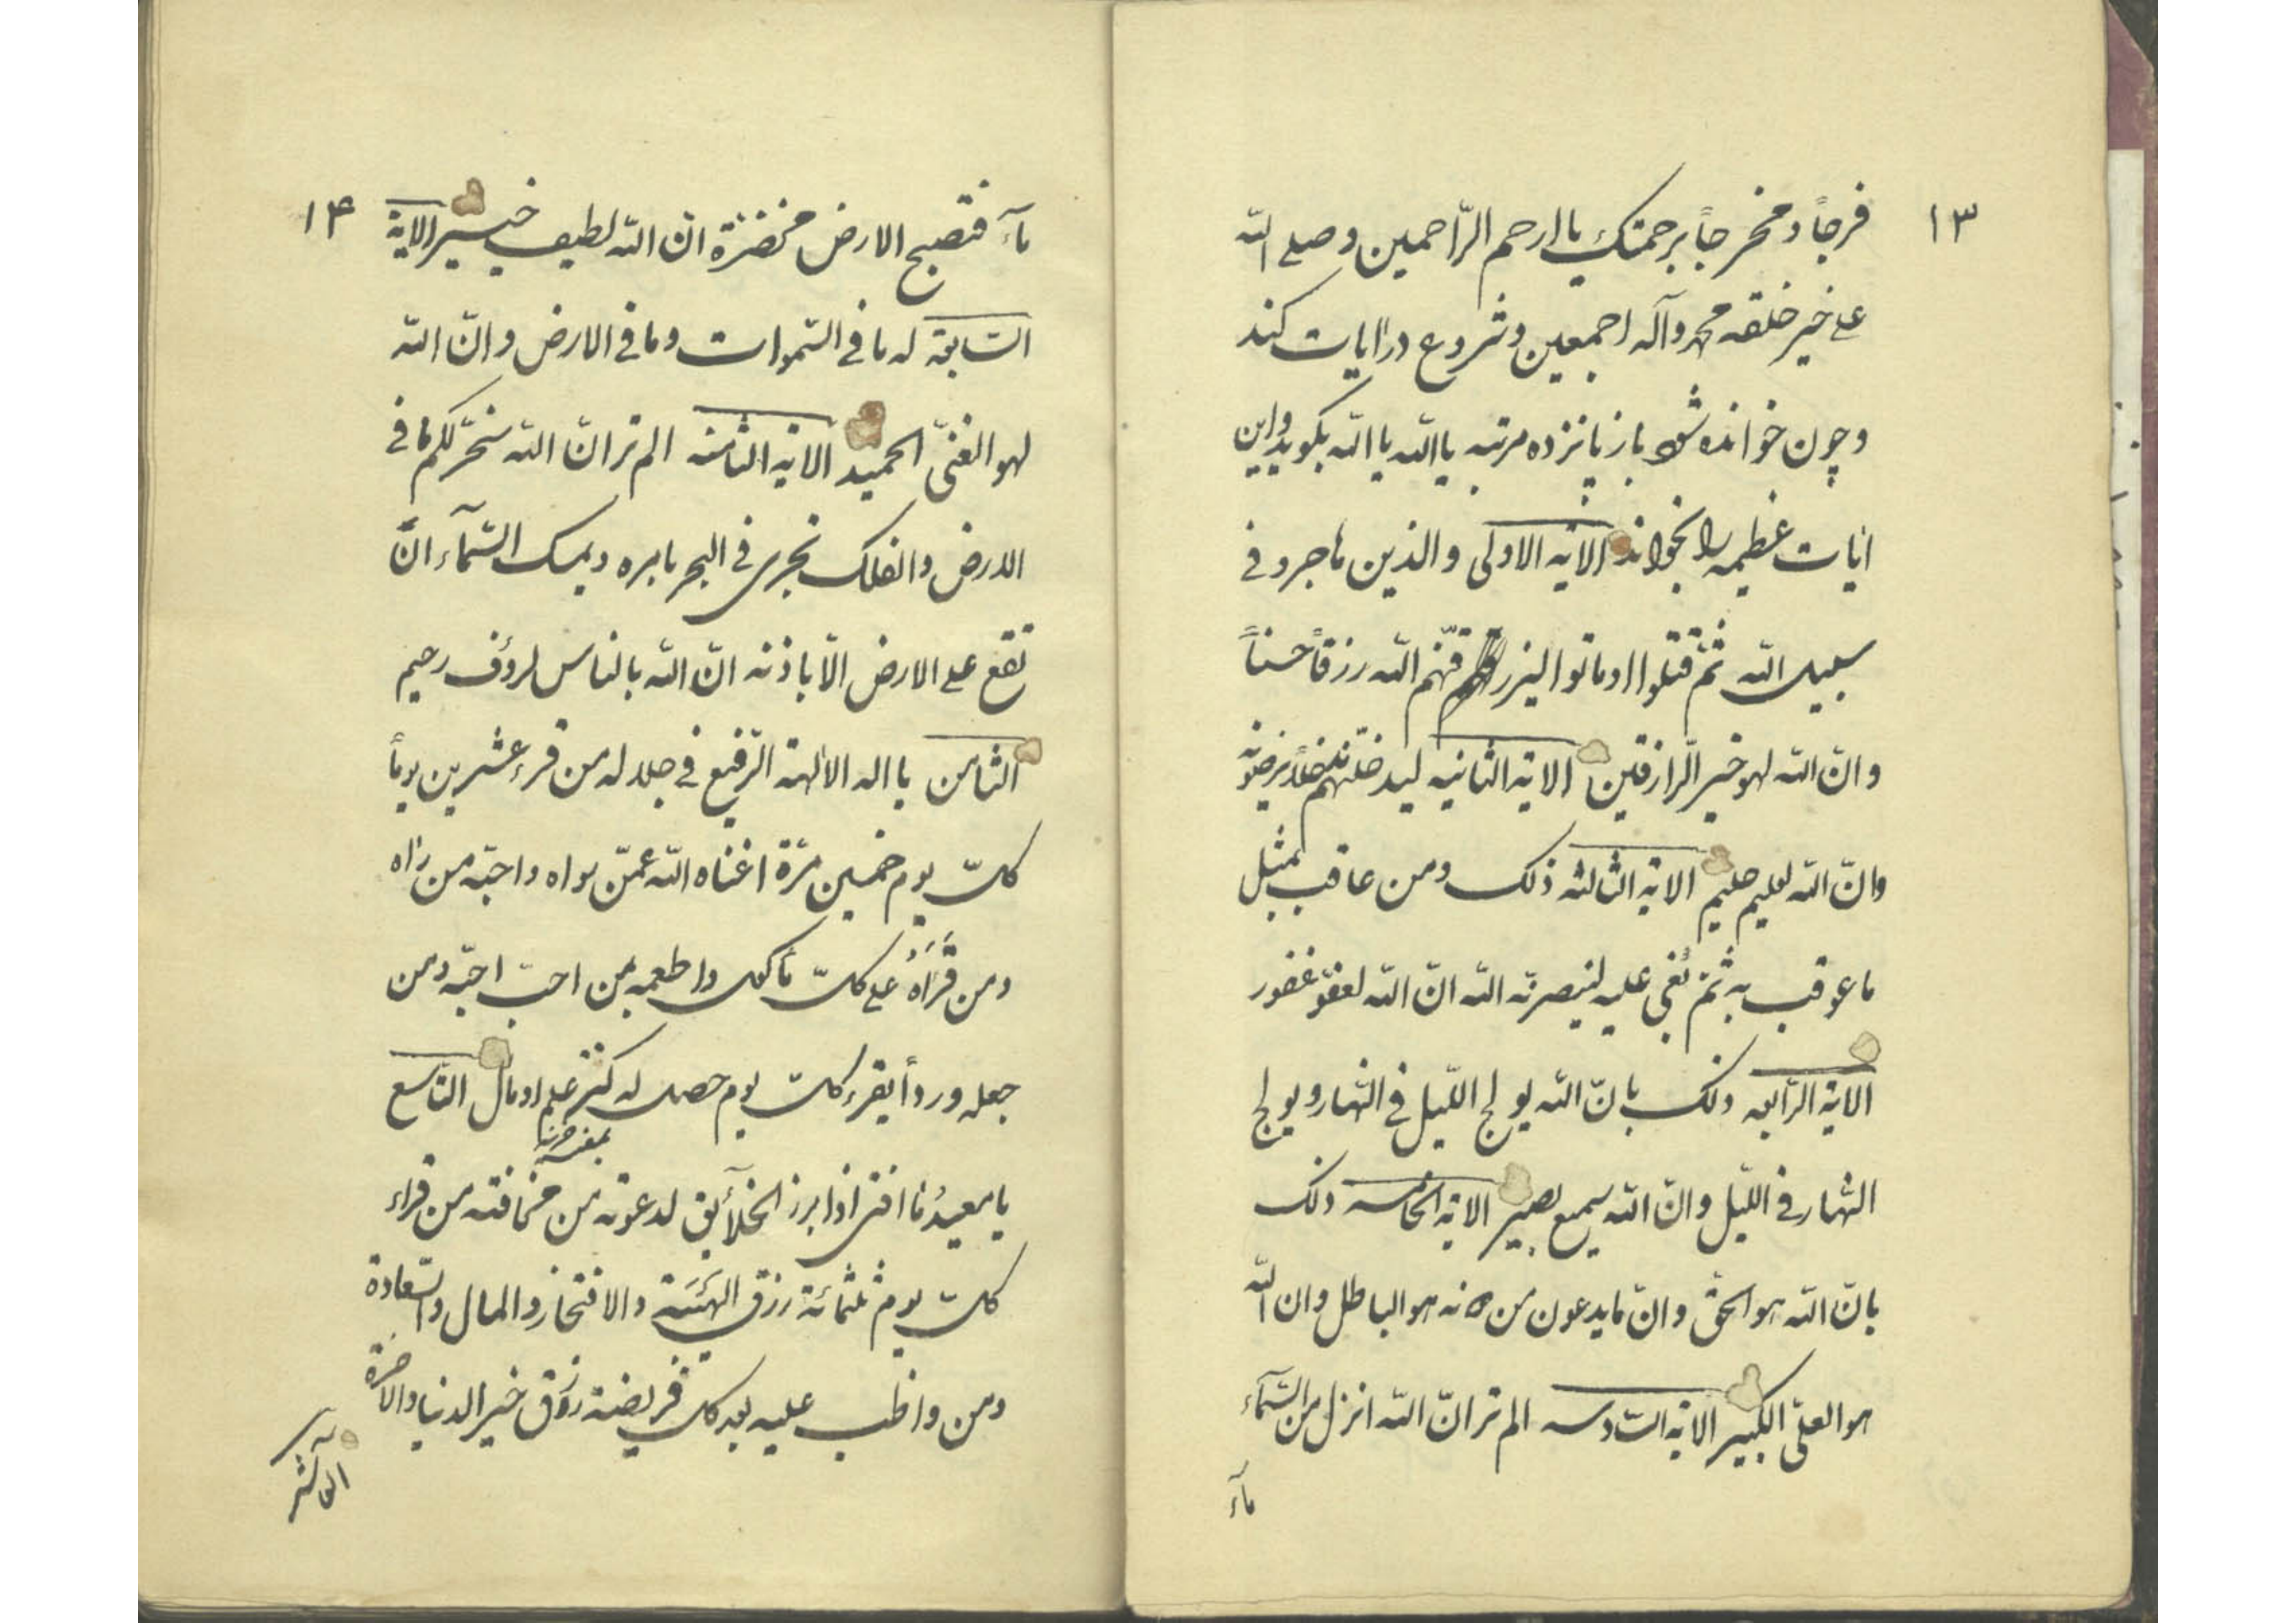 ١٣
فرجاً و مخرجاً برحمتك یا ارحم الرّاحمین و صلی اللّه
علی خیر خلقه محمد وآله اجمعین و شروع در ایات کند
و چون خوانده شود باز پانزده مرتبه یا اللّه یا اللّه بکوید و این
ایات عظیمه را بخواند الایه الاولی والذین هاجروا فی
سبیل اللّه ثمّ قتلوا او ماتوا لیرزقنّهم اللّه رزقاً حسناً
وانّ اللّه لهو خیر الرّازقین الایة الثانیه لیدخلنهم مدخلاً یرضونه
وانّ اللّه لعلیم حلیم الایة الثالثه ذلک ومن عاقب بمثل
ما عوقب به ثمّ بُغی علیه لینصرنّه اللّه انّ اللّه لعفوّ غفور
الایة الرّابعه ذلک بانّ اللّه یولج اللّیل فی النّهار و یولج
النّهار فی اللّیل وانّ اللّه سمیع بصیر الایة الخامسه ذلک
بانّ اللّه هو الحقّ وانّ ما یدعون من دونه هو الباطل وان اللّه
هو العلیّ الکبیر الایة السّادسه الم تر انّ اللّه انزل من السّمآء
مآء
١۴
مآء فتصبح الارض مخضرّة انّ اللّه لطیف خبیر الایة
السّابعة له ما فی السّموات وما فی الارض وانّ اللّه
لهو الغنیّ الحمید الایة الثامنه الم تر انّ اللّه سخّر لکم ما فی
الارض والفلک تجری فی البحر بامره ویمسک السّمآء انّ
تقع علی الارض الّا باذنه انّ اللّه بالناس لرؤف رحیم
الثامن یا اله الالهة الرّفیع فی جلاله من قرء عشرین یوماً
کلّ یوم خمسین مرّة اغناه اللّه عمّن سواه واحبّه من راه
ومن قَرَأَهُ علی کلّ مأکول واطعمه لمن احبّ احبّه ومن
جعله ورداً یقرء کلّ یوم حصل له کنز علم او مال التاسع
یا معیدُ ما افنی اذا برز الخلآئق لدعوته من مخافته من قراء
کلّ یوم ثلثمائة رزق الهَیْئَة والافتخار والمال والسّعادة
ومن واظب علیه بعد کل فریضة رزق خیر الدنیا والاخرة
العاشر